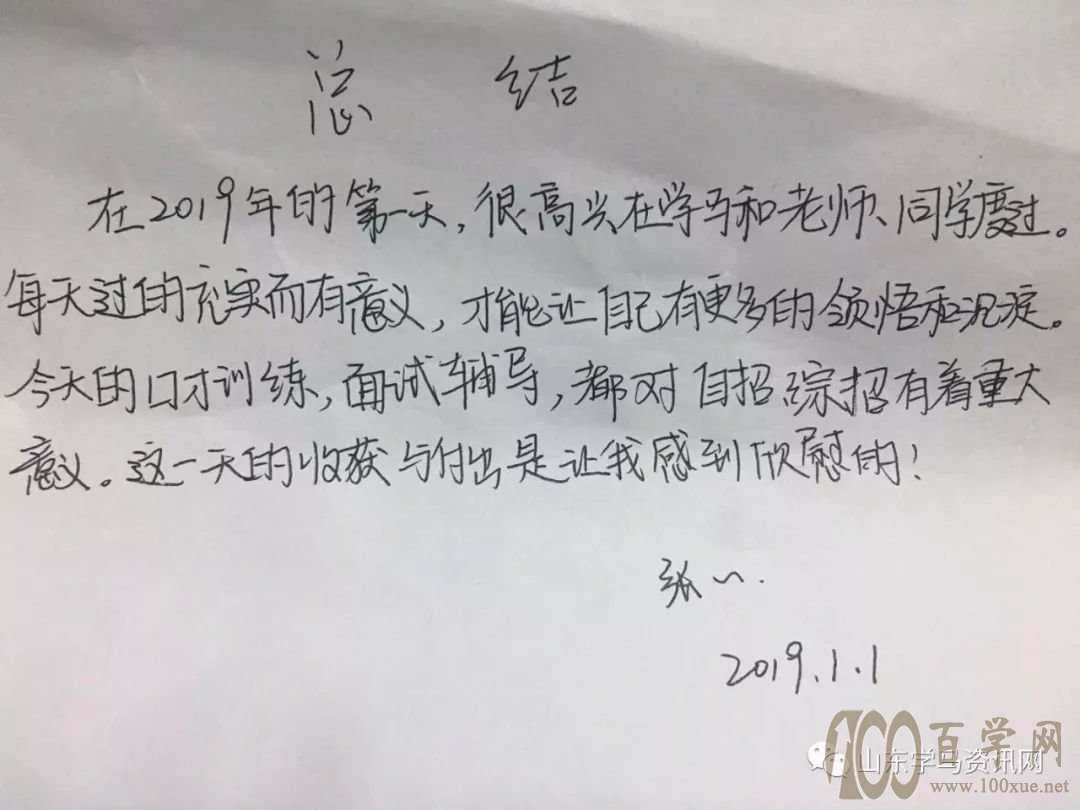 总 结
在2019年的第一天,很高兴在学马和老师、同学度过。
每天过的充实而有意义,才能让自己有更多的领悟和沉淀。
今天的口才训练,面试辅导,都对自招综招有着重大
意义。这一天的收获与付出是让我感到欣慰的!
张一.
2019.1.1
100百学网
山东学马资讯网
www.100xue.net